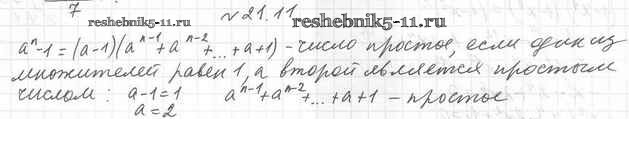 7
reshebnik5-11.ru № 21.11 reshebnik5-11.ru
aⁿ-1 = (a-1)(aⁿ⁻¹+aⁿ⁻²+...+a+1) - число простое, если один из
множителей равен 1, а второй является простым
числом: a-1=1 aⁿ⁻¹+aⁿ⁻²+...+a+1 – простое
a=2